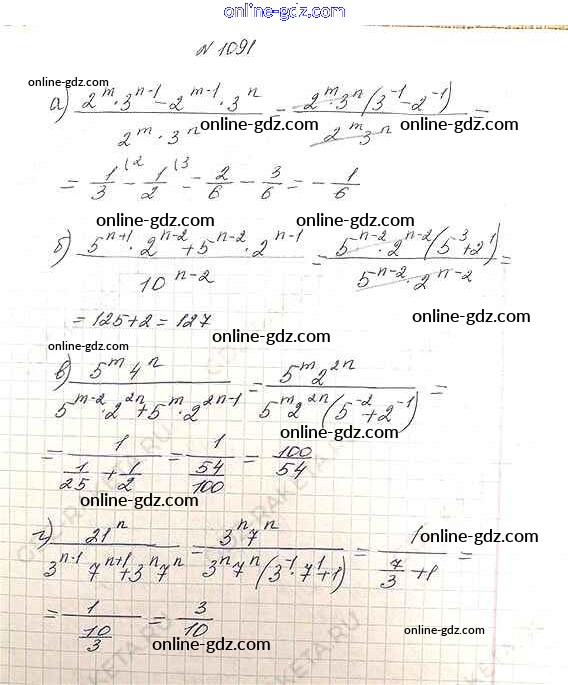 online-gdz.com
N 1091
online-gdz.com
а) (2^m · 3^(n-1) - 2^(m-1) · 3^n) / (2^m · 3^n) = (2^m · 3^n (3^(-1) - 2^(-1))) / (2^m 3^n) =
online-gdz.com online-gdz.com
= 1/3 (2 - 1/2 (3 = 2/6 - 3/6 = - 1/6
online-gdz.com online-gdz.com
б) (5^(n+1) · 2^(n-2) + 5^(n-2) · 2^(n-1)) / 10^(n-2) = (5^(n-2) · 2^(n-2) (5^3 + 2^1)) / (5^(n-2) · 2^(n-2)) =
= 125 + 2 = 127
online-gdz.com online-gdz.com
в) (5^m 4^n) / (5^(m-2) · 2^(2n) + 5^m · 2^(2n-1)) = (5^m 2^(2n)) / (5^m 2^(2n) (5^(-2) + 2^(-1))) =
online-gdz.com online-gdz.com
= 1 / (1/25 + 1/2) = 1 / (54/100) = 100/54
online-gdz.com online-gdz.com
г) 21^n / (3^(n-1) 7^(n+1) + 3^n 7^n) = (3^n 7^n) / (3^n 7^n (3^(-1) · 7^1 + 1)) = 1 / (7/3 + 1) =
online-gdz.com
= 1 / (10/3) = 3/10
online-gdz.com online-gdz.com